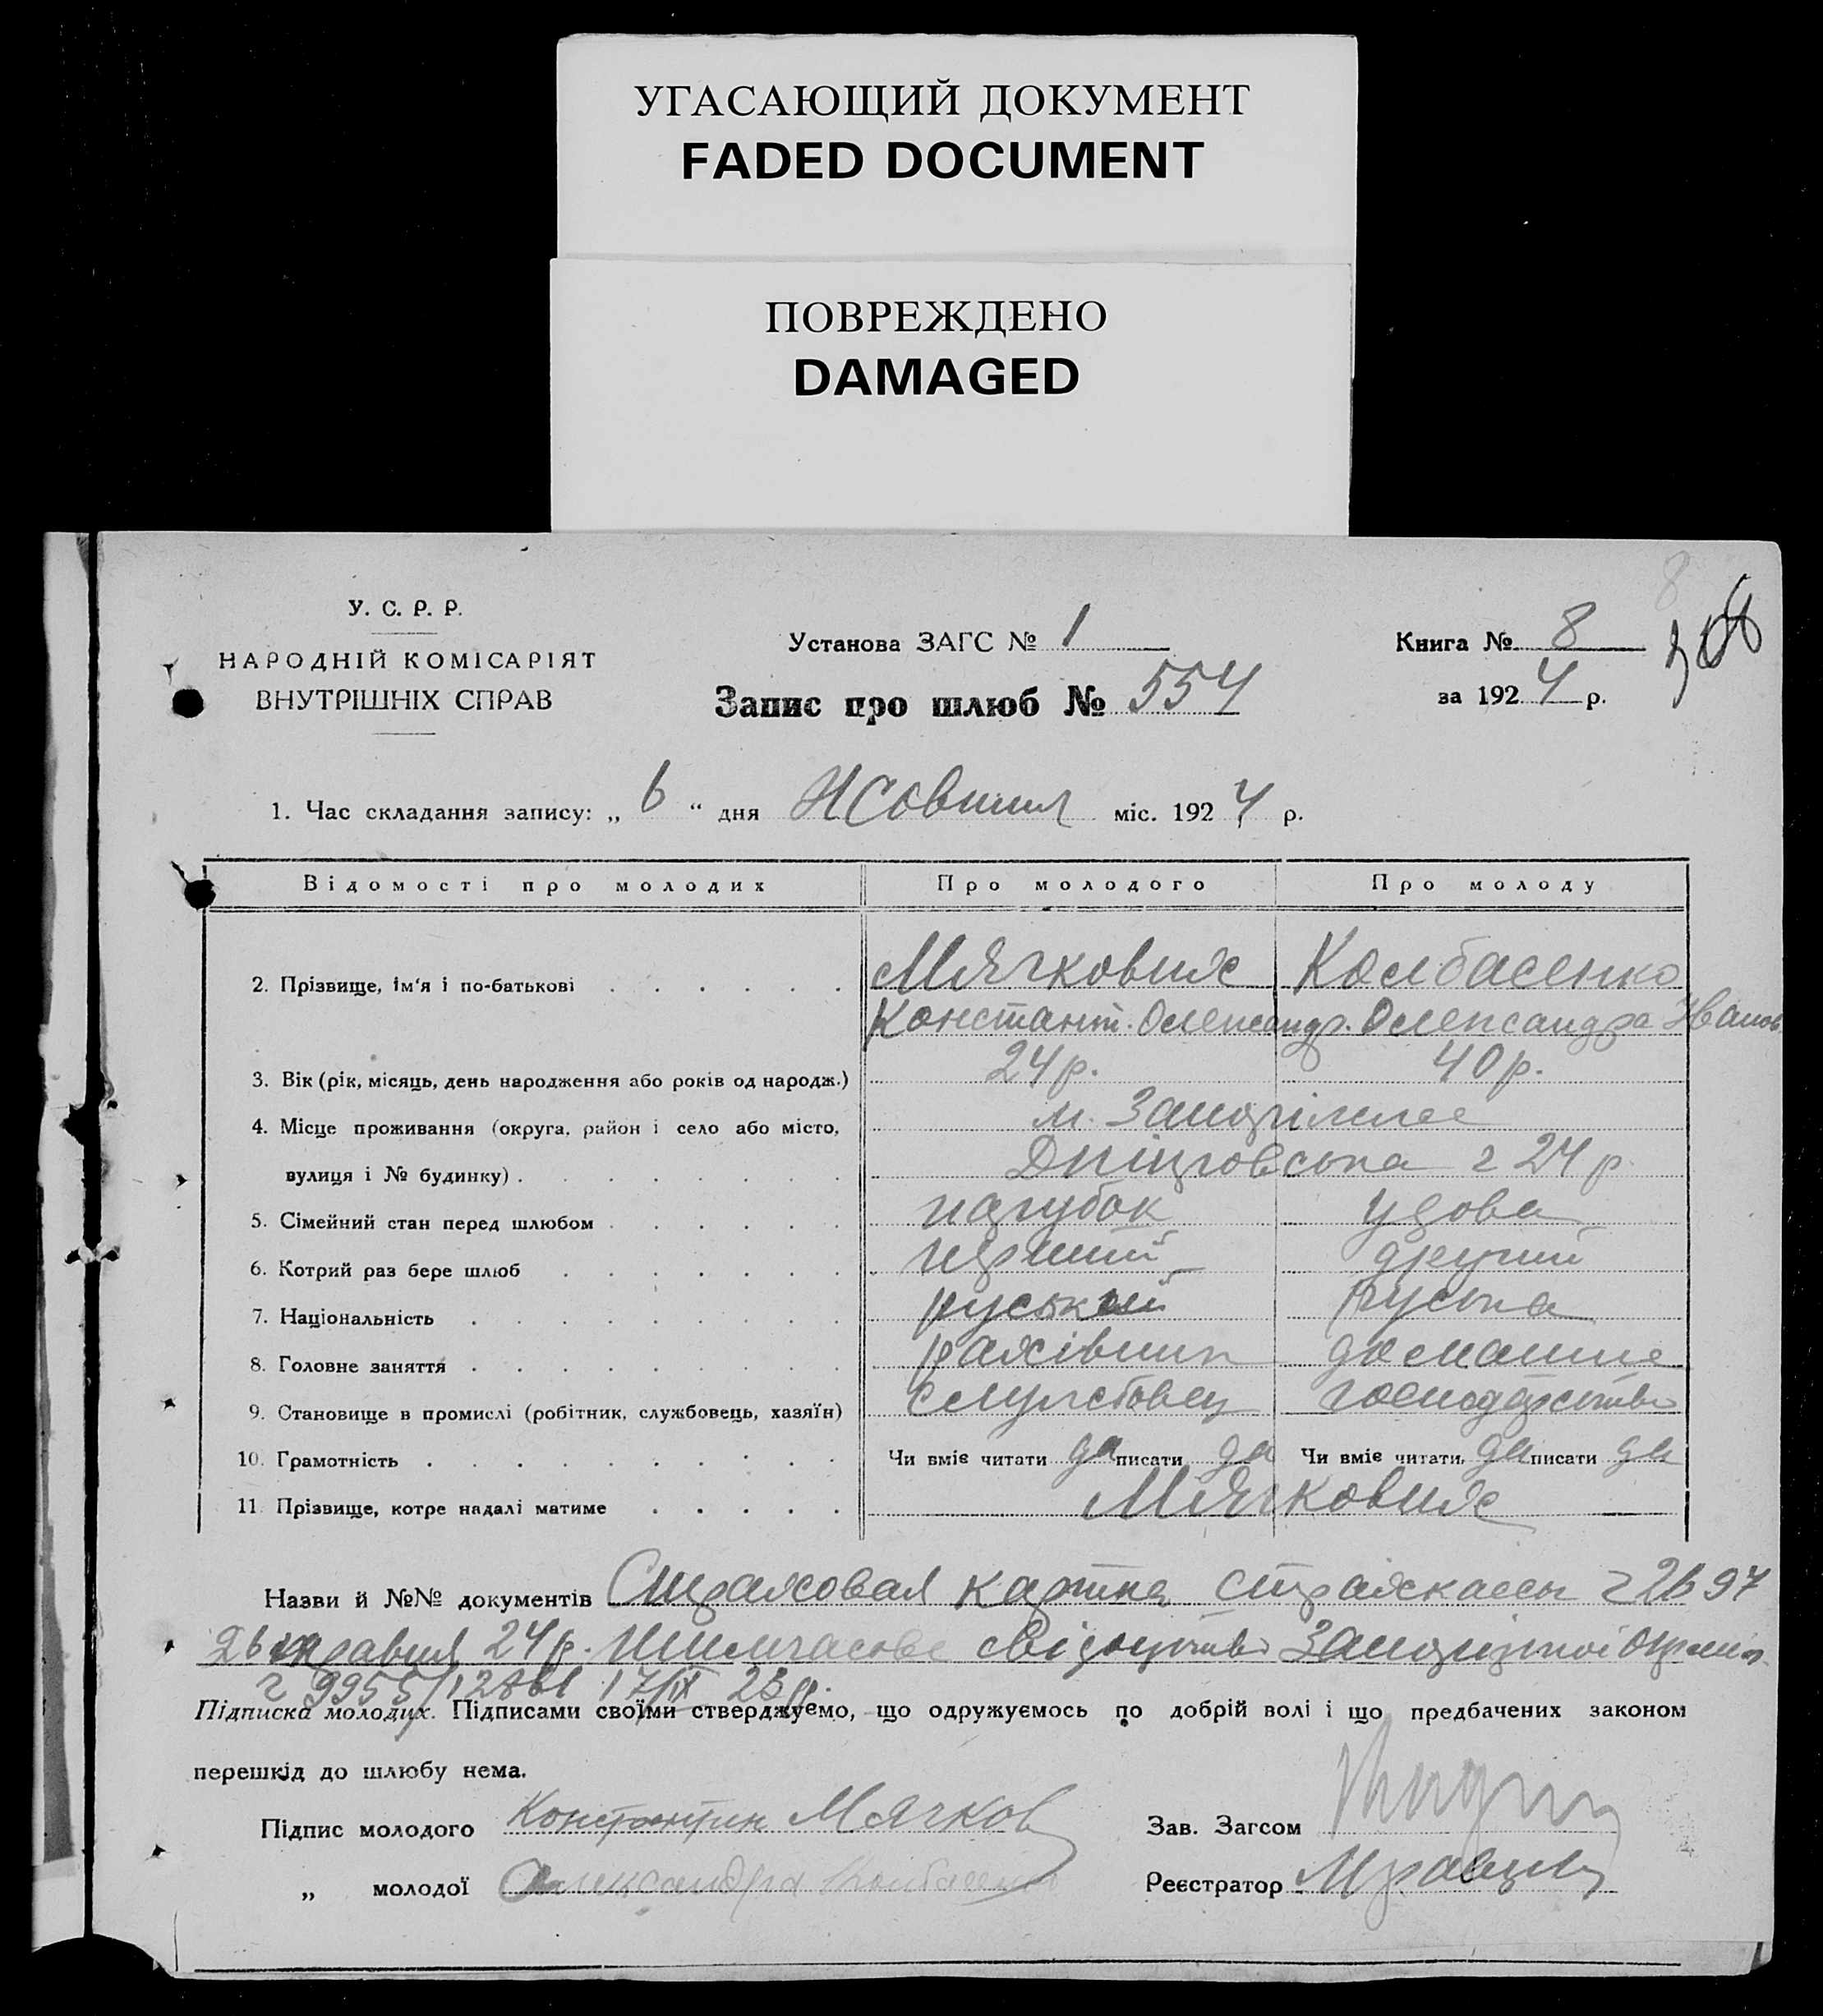 УГАСАЮЩИЙ ДОКУМЕНТ
FADED DOCUMENT
ПОВРЕЖДЕНО
DAMAGED
У. С. Р. Р.
НАРОДНІЙ КОМІСАРІЯТ
ВНУТРІШНІХ СПРАВ
Установа ЗАГС № 1
Запис про шлюб № 554
Книга № 8
за 1924 р.
1. Час складання запису: „ 6 “ дня Жовтня міс. 1924 р.
Відомості про молодих Про молодого Про молоду
2. Прізвище, ім‘я і по-батькові Мячкових Колбасенко
Константин. Олександр. Олександра Іванов.
3. Вік (рік, місяць, день народження або років од народж.) 24 р. 40 р.
4. Місце проживання (округа, район і село або місто, м. Запоріжже
вулиця і № будинку) Дніпровська 24 р.
5. Сімейний стан перед шлюбом парубок удова
6. Котрий раз бере шлюб перший другий
7. Національність руський руська
8. Головне заняття рахівник домашнє
9. Становище в промислі (робітник, службовець, хазяїн) службовец господарство
10. Грамотність Чи вміє читати да писати да Чи вміє читати, да писати да
11. Прізвище, котре надалі матиме Мячкових
Назви й №№ документів Страховая картка страхкассы 2697
26 травня 24 р. тимчасове свідоцтво Запорізької
9955/ 17/IX 23 р.
Підписка молодих. Підписами своїми стверджуємо, що одружуємось по добрій волі і що предбачених законом
перешкід до шлюбу нема.
Підпис молодого Константин Мячков
Зав. Загсом
„ молодої Александра Колбасенко
Реєстратор